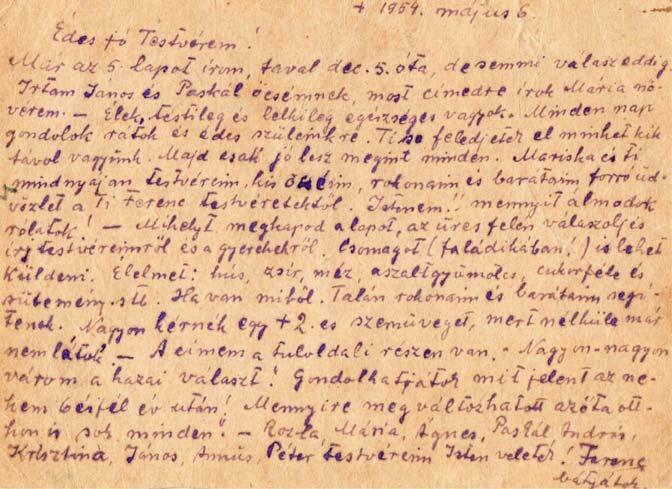 + 1954. május 6.
Édes jó Testvérem!
Már az 5. lapot irom, taval dec. 5. óta, de semmi válasz eddig
Irtam János és Paskál öcsémnek, most címedre irok Mária nő-
vérem. — Élek, testileg és lelkileg egészséges vagyok. Minden nap
gondolok rátok és édes szüleinkre. Ti se feledjetek el minket kik
távol vagyunk. Majd csak jó lesz megint minden. Mariska és ti
mindnyájan testvéreim, kis öcséim, rokonaim és barátaim forró üd-
vözlet a Ti Ferenc testvéretektől. Istenem! mennyit álmodok
rólatok! — Mihelyt megkapod a lapot, az üres felén válaszolj és
irj testvéreimről és a gyerekekről. Csomagot (faládikában!) is lehet
küldeni. Élelmet: hus, zsir, méz, aszaltgyümölcs, cukorféle és
sütemény. stb. Ha van miből. Talán rokonaim és barátaim segi-
tenek. Nagyon kérnék egy +2. es szemüveget, mert nélküle már
nem látok — A cimem a tuloldali részen van. — Nagyon-nagyon
várom a hazai választ! Gondolhatjátok mit jelent az ne-
kem 6 és fél év után! Mennyire megváltozhatott azóta ott-
hon is sok minden! — Rozla, Mária, Ágnes, Paskál András,
Krisztina, János, Annus, Péter testvéreim Isten veletek! Ferenc
bátyátok.